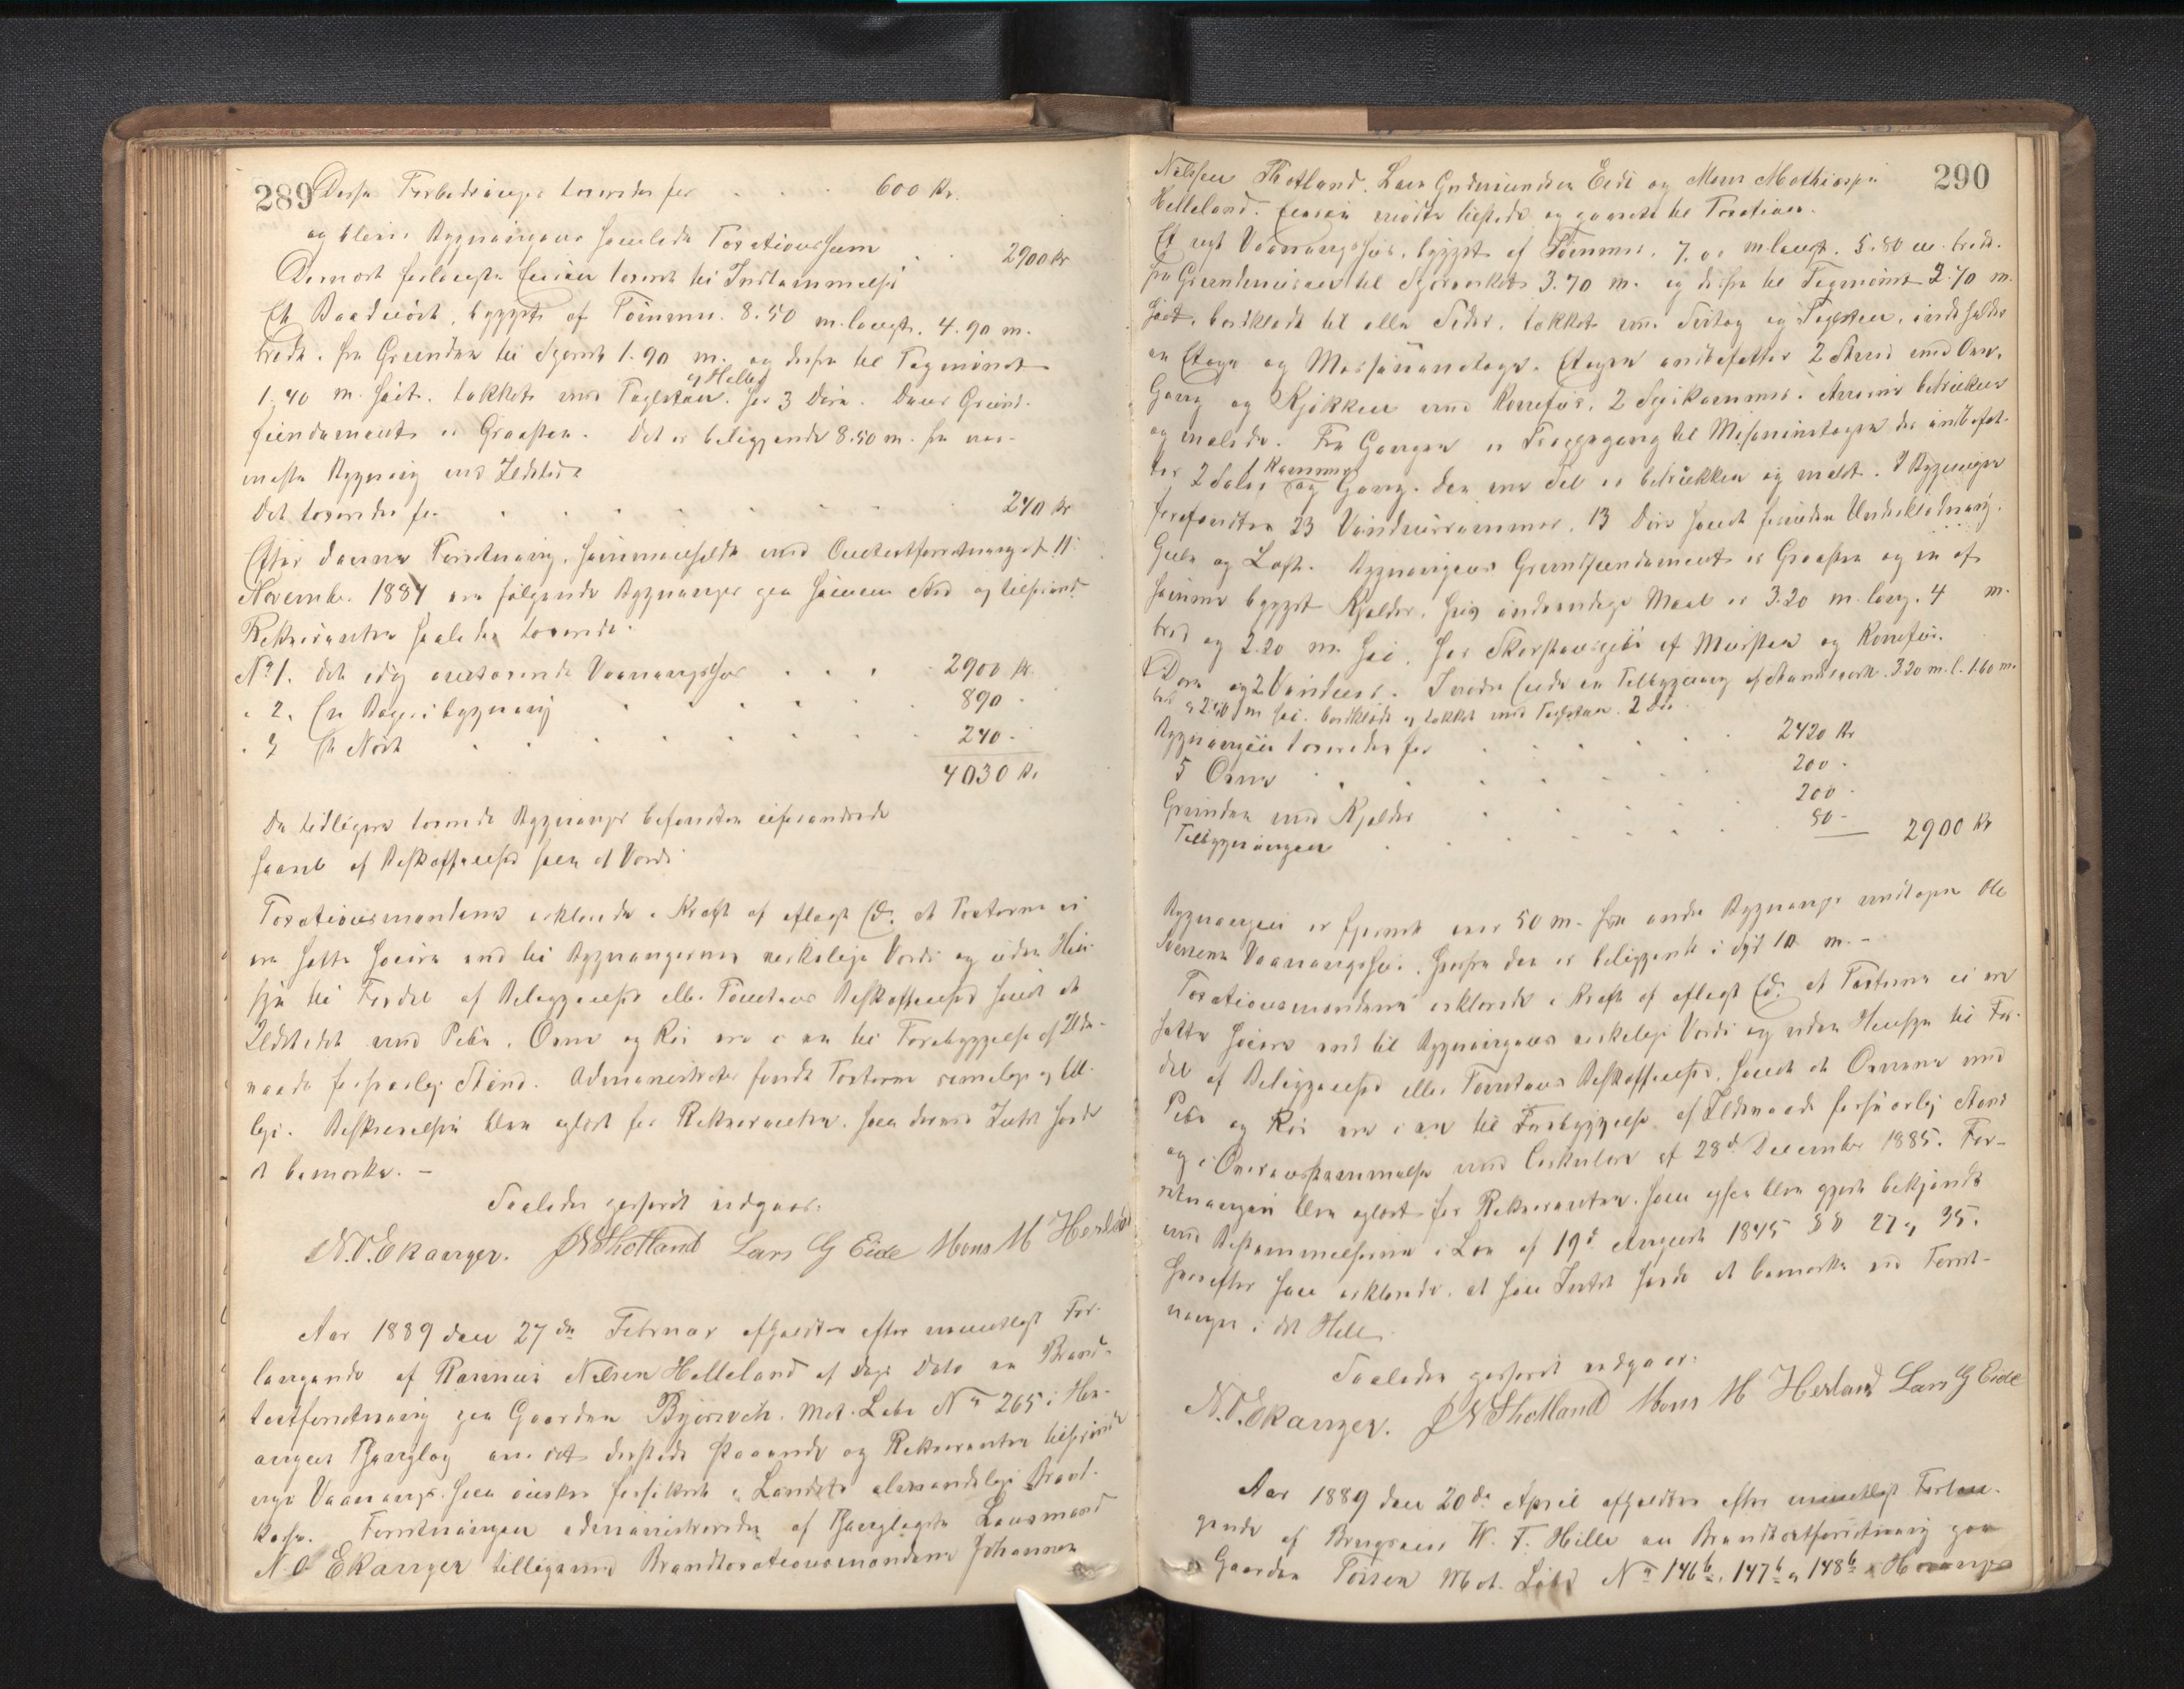 289
Disse Forbedringer taxeredes for . . . 600 Kr.
og bliver Bygningens samlede Taxationssum . . 2900 Kr
Dernæst forlangtes taxeret til Indlemmelse
Et Baadnöst, bygget af Tömmer. 8.50 m. langt, 4.90 m.
bredt. fra Grunden til 1.90 m. og derfra til Tagmönet
og Heller
1.40 m. høit. takket med Taglsteen. har 3 Döre. Dens Grund-
fundament er Graasten. Det er beliggende 8.50 m. fra nær-
meste Bygning med Ildsted.
Det taxeredes for . . . . . . . 240 Kr
Efter denne Forretning, sammenholdt med Omtaxtforretning af 11
November 1884 ere følgende Bygninger paa
Rekvirenten saaledes taxerede:
No 1. Det idag omtaxerede Vaaningshus . . . . 2900 Kr.
" 2. En Bygning . . . . . . 890 "
" 3 Et Nöst . . . . . . . 240 -
4030 Kr
De tidligere taxerede Bygninger befandtes uforandrede
saavel af Beskaffenhed som af Værdi.
Taxationsmændene erklærede i Kraft af aflagt Ed, at Taxterne ei
ere satte høiere end til Bygningernes virkelige Værdi og uden Hen-
syn til Fordel af Beliggenhed eller Tomtens Beskaffenhed samt at
Ildstedet med Pibe, Ovne og Rör ere i en til Forebyggelse af Ilds-
vaade forsvarlig Stand. Administrator fandt Taxterne rimelige og bil-
lige. Beskrivelsen blev oplæst for Rekvirenten, som dermed Intet havde
at bemærke. –
Saaledes passeret udgaar:
N. O. Ekanger. J N Thotland Lars G Eide Mons M Herland
Aar 1889 den 27de Februar afholdtes efter mundtligt For-
langende af Rasmus Nilsen Helleland af Dags Dato en Brand-
taxtforretning paa Gaarden Björsvik, Mat. Löbe No 265 i Ho-
sangers Thinglag over et dersteds staaende og Rekvirenten tilhørende
nye Vaaningshus, som ønskes forsikret i Landets almindelige Brand-
kasse. Forretningen administreredes af Thinglagets Lensmand
N. O. Ekanger tilligemed Brandtaxationsmændene Johannes
290
Nilssen Thotland, Lars Gudmundsen Eide og Mons Mathiassen
Helleland. mødte tilstede og gaaet til Taxation.
Et nyt Vaaningshus, bygget af Tömmer. 7. m. langt. 5.80 m. bredt.
fra Grundmuren til 3.70 m. og derfra til Tagmönet 2.70 m.
høit, bordklædt til alle Sider, takket med Sutag og Taglsteen, indeholder
en Etage og Messaninetage. Etagen indbefatter 2 Stuer med Ovn,
Gang og Kjökken med Komfur, 2 betrukken
og malede. Fra Gangen er Trappegang til Messaninetagen der indbefat-
1 Kammer
ter 2 Sale, og Gang. den ene Del er betrukken og malet. I Bygningen
forefandtes 23 Vinduesrammer, 13 Döre samt fornöden Underklædning,
Gulv og Loft. Bygningens Grundfundament er Graasten og en af
samme bygget Kjelder, hvis indvendige Maal er 3.20 m. lang, 4 m.
bred og 2.20 m. høi, har Skorstenspibe af Mursten og Komfur.
1 Dör og 2 Vinduer. I nedre Ende en Tilbygning af Standværk. 3.20 m. l. 1.60 m.
br. og 2.50 m høi. bordklædt og takket med Taglsteen. 2 Döre
Bygningen taxeredes for . . . . . 2420 Kr
5 Ovne . . . . . . 200 -
Grunden med Kjelder . . . . 200 -
Tilbygningen . . . . . 80 - 2900 Kr
Bygningen er fjernet over 50 m. fra andre Bygninger undtagen Ole
Vaaningshus, hvorfra den er beliggende i Syd 10 m. –
Taxationsmændene erklærede i Kraft af aflagt Ed, at Taxterne ei ere
satte høiere end til Bygningens virkelige Værdi og uden Hensyn til For-
del af Beliggenhed eller Tomtens Beskaffenhed, samt at Ovnene med
Pibe og Rör ere i en til Forebyggelse af Ildsvaade forsvarlig Stand
og i Overensstemmelse med Cirkulære af 28de December 1885. For-
retningen blev oplæst for Rekvirenten, som ogsaa blev gjort bekjendt
med Bestemmelserne i Lov af 19de August 1845 §§ 27 og 35.
Herefter han erklærede, at han Intet havde at bemærke ved Forret-
ningen i det Hele.
Saaledes passeret udgaar:
N. O. Ekanger. J N Thotland Mons M Herland Lars G Eide
Aar 1889 den 20de April afholdtes efter mundtligt Forlan-
gende af Brugseier W. T. Hille en Brandtaxtforretning paa
Gaarden Mat. Löbe No 146b, 147b og 148b i Hosanger